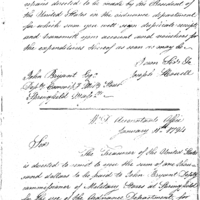 directed to be made by the President of
the United States in the ordnance department
for which sum you will sign duplicate receipts
and transmit your account and vouchers for
the expenditures thereof as soon as may be
Joseph Howell
John Bryant Esq
Springfield Mass
W.D. Accountants Office
January 1794
Sir
The Treasurer of the United States
is directed to remit to you the sum of
sand dollars to be paid to John Bryant Deputy
commissary of Military Stores at Springfield
for the use of the Ordnance Department, for